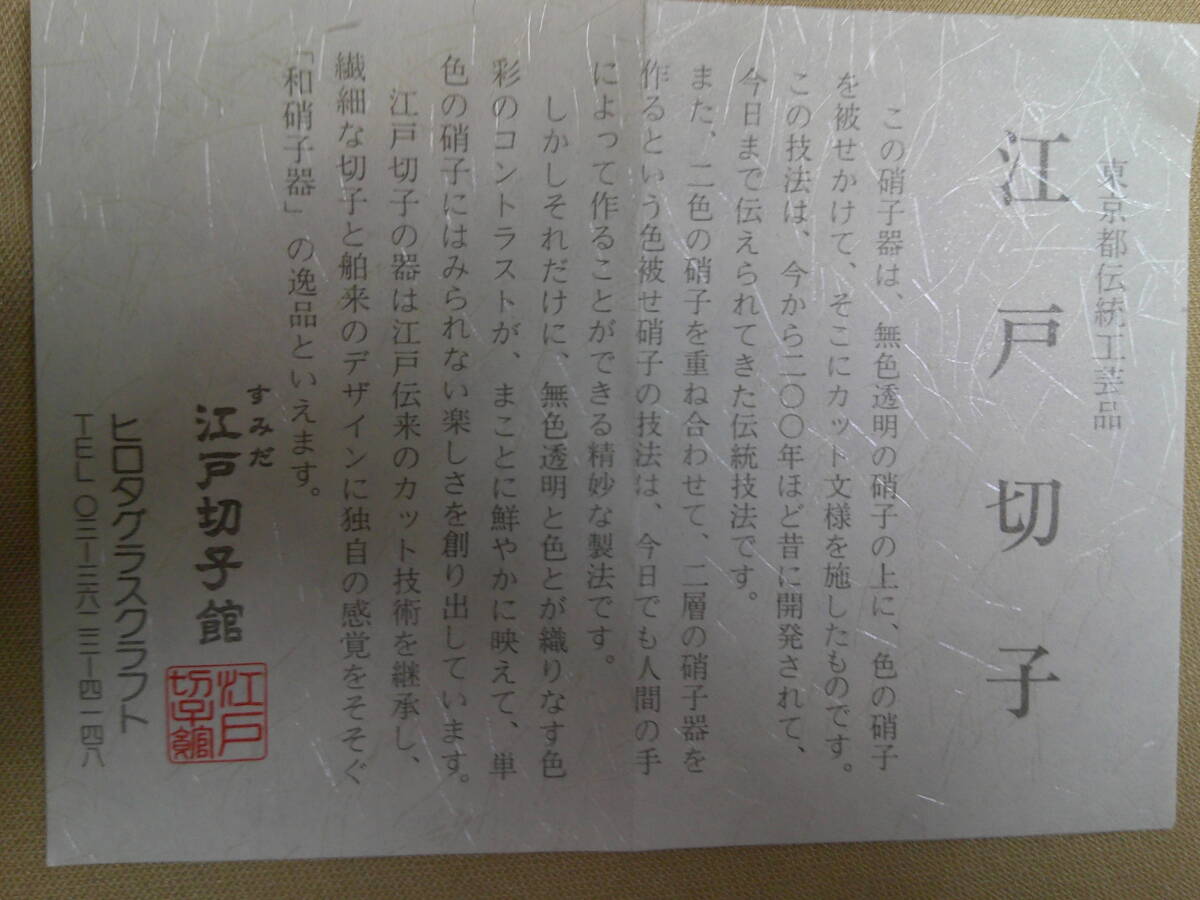 東京都伝統工芸品
江戸切子
この硝子器は、無色透明の硝子の上に、色の硝子
を被せかけて、そこにカット文様を施したものです。
この技法は、今から二〇〇年ほど昔に開発されて、
今日まで伝えられてきた伝統技法です。
また、二色の硝子を重ね合わせて、二層の硝子器を
作るという色被せ硝子の技法は、今日でも人間の手
によって作ることができる精妙な製法です。
しかしそれだけに、無色透明と色とが織りなす色
彩のコントラストが、まことに鮮やかに映えて、単
色の硝子にはみられない楽しさを創り出しています。
江戸切子の器は江戸伝来のカット技術を継承し、
繊細な切子と舶来のデザインに独自の感覚をそそぐ
「和硝子器」の逸品といえます。
すみだ
江戸切子館
江戸
切子館
ヒロタグラスクラフト
TEL〇三―三六二三―四一四八